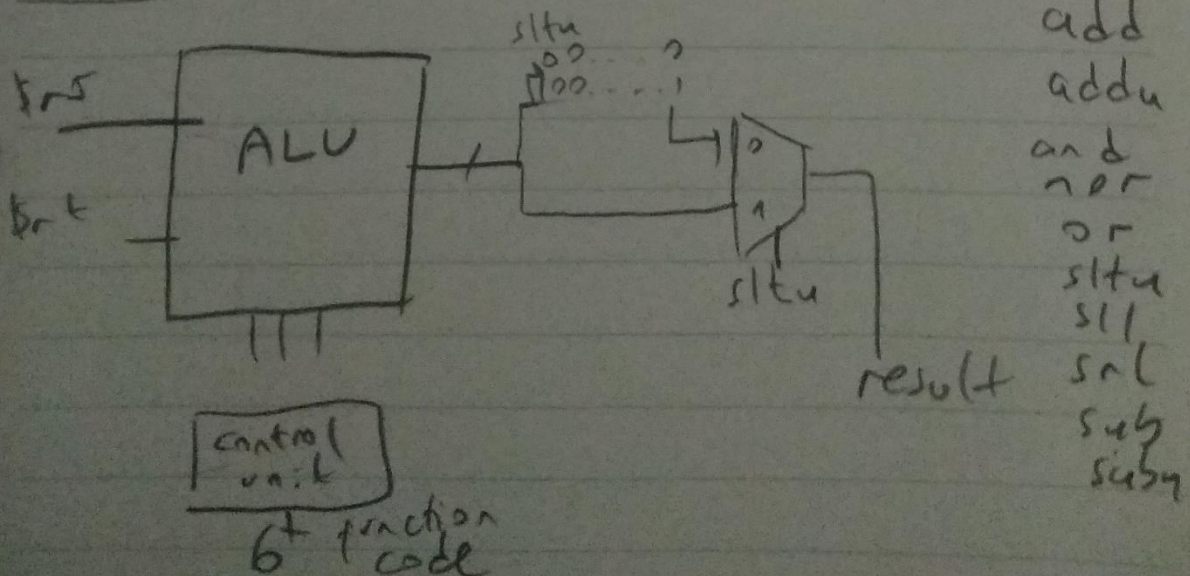 sltu
00....?
00.....1
$rs
ALU
$rt
0
1
sltu
result
control
unit
6
function
code
add
addu
and
nor
or
sltu
sll
srl
sub
subu